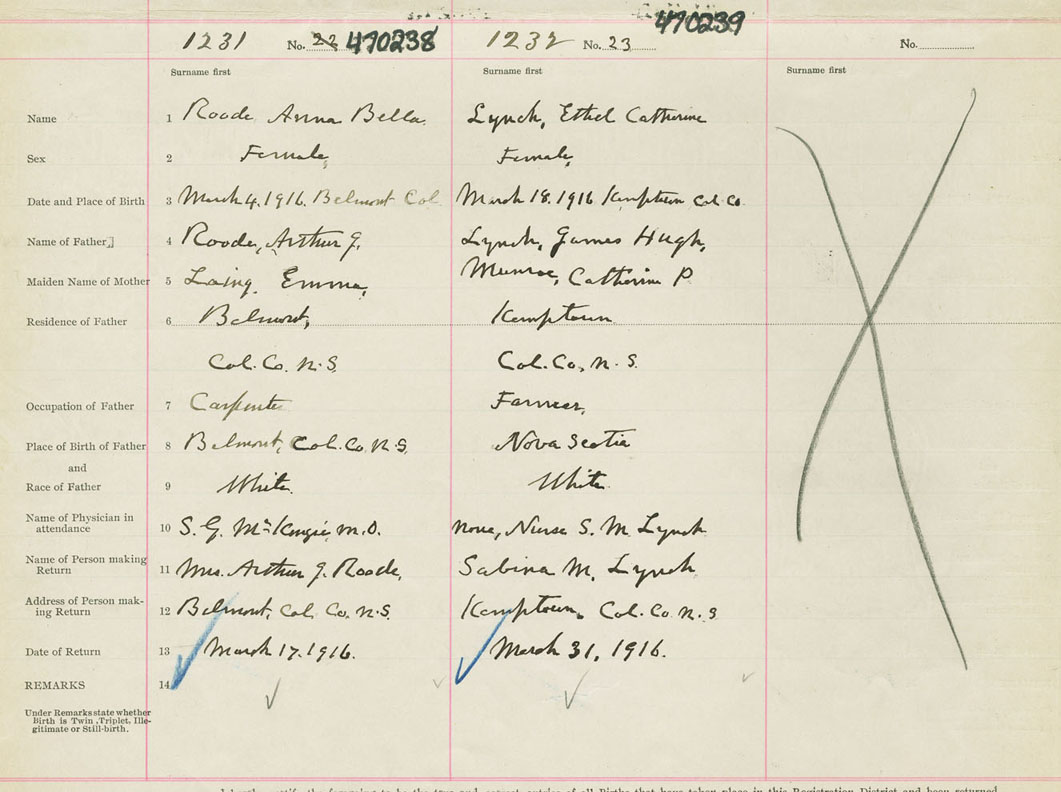 1231 No. 22 470238 1232 No. 23 470239 No.
Surname first Surname first Surname first
Name 1 Roode, Anna Bella. Lynch, Ethel Catherine
Sex 2 Female, Female,
Date and Place of Birth 3 March 4, 1916. Belmont Col March 18. 1916 Kemptown Col. Co.
Name of Father 4 Roode, Arthur J. Lynch, James Hugh,
Maiden Name of Mother 5 Laing, Emma, Munroe, Catherine P.
Residence of Father 6 Belmont, Kemptown
Col. Co. N.S. Col. Co, N.S.
Occupation of Father 7 Carpenter Farmer,
Place of Birth of Father 8 Belmont, Col. Co. N.S. Nova Scotia
and
Race of Father 9 White. White.
Name of Physician in
attendance 10 S. G. McKenzie, M.D. None, Nurse S. M. Lynch
Name of Person making
Return 11 Mrs. Arthur J. Roode, Sabina M. Lynch
Address of Person mak-
ing Return 12 Belmont, Col. Co. N.S. Kemptown, Col. Co. N.S
Date of Return 13 March 17. 1916. March 31, 1916.
REMARKS 14
Under Remarks state whether
Birth is Twin, Triplet, Ille-
gitimate or Still-birth.